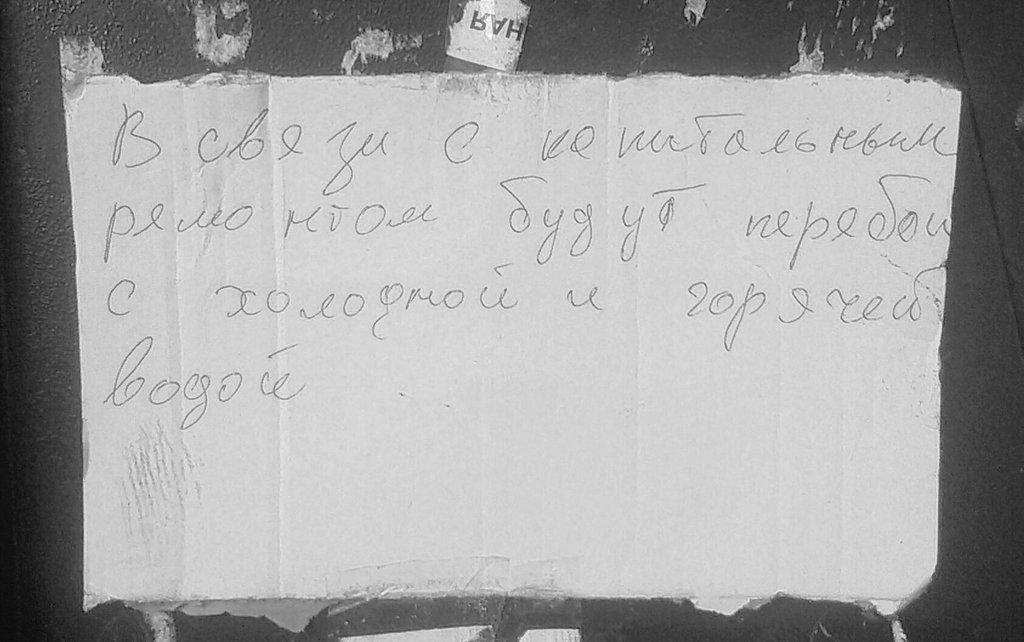 RAH
В связи с капитальным
рямонтом будут перябои
с холодной и горячей
водой